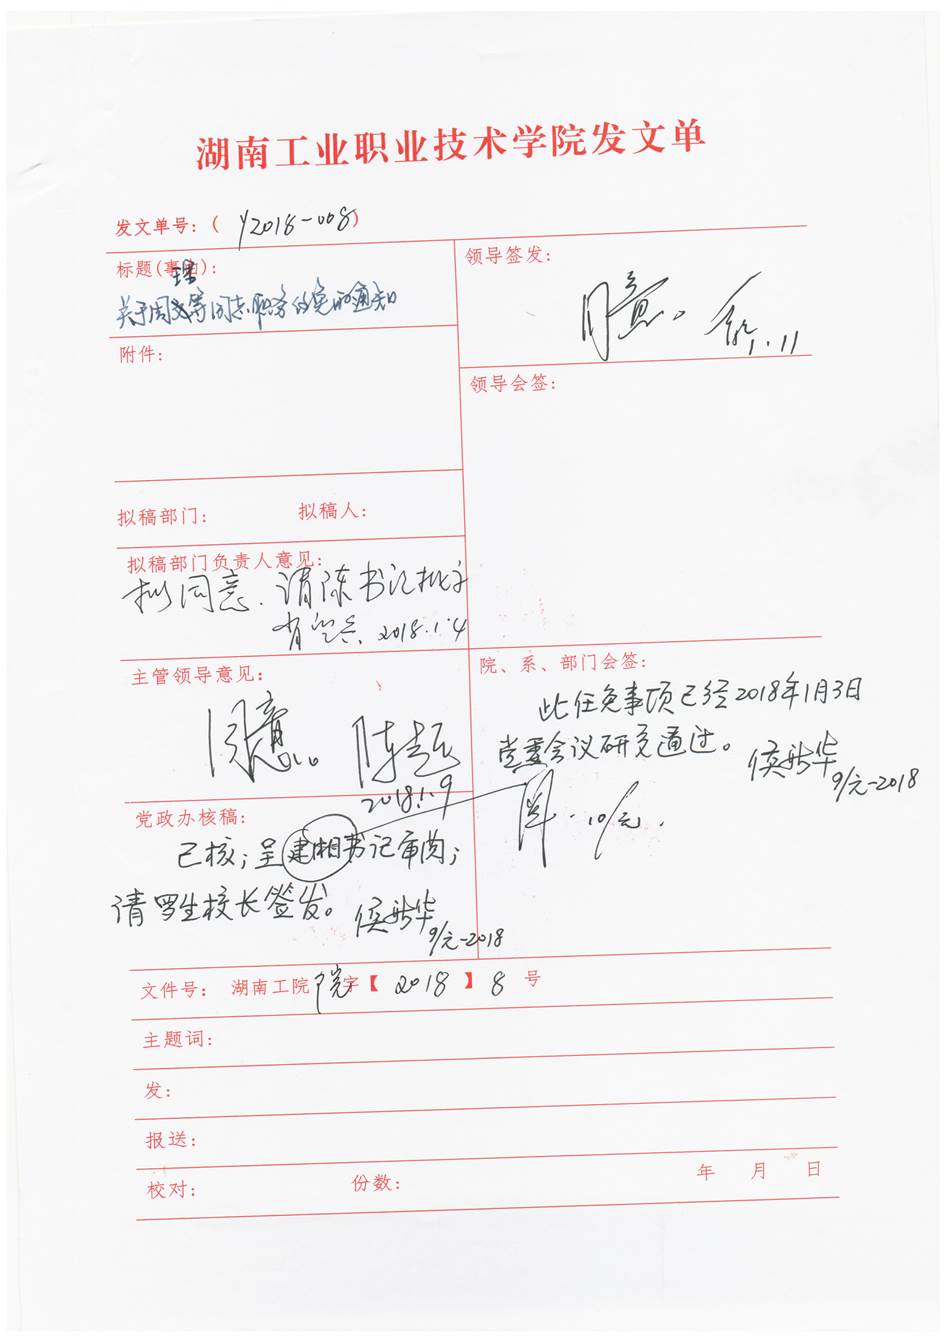 湖南工业职业技术学院发文单
发文单号：( Y2018-008)
标题(事由)：
关于周等同志职务的免的通知
附件：
拟稿部门： 拟稿人：
拟稿部门负责人意见：
拟同意、请陈书记批示
2018.1.4
主管领导意见：
同意。 陈超
2018.1.9
党政办核稿：
已核；呈建湘书记审阅；
请罗生校长签发。 侯新华
9/元-2018
领导签发：
同意。
1.11
领导会签：
院、系、部门会签：
此任免事项已经2018年1月3日
党委会议研究通过。 侯新华
9/元-2018
10/元.
文件号： 湖南工院院字【 2018 】 8 号
主题词：
发：
报送：
校对： 份数： 年 月 日